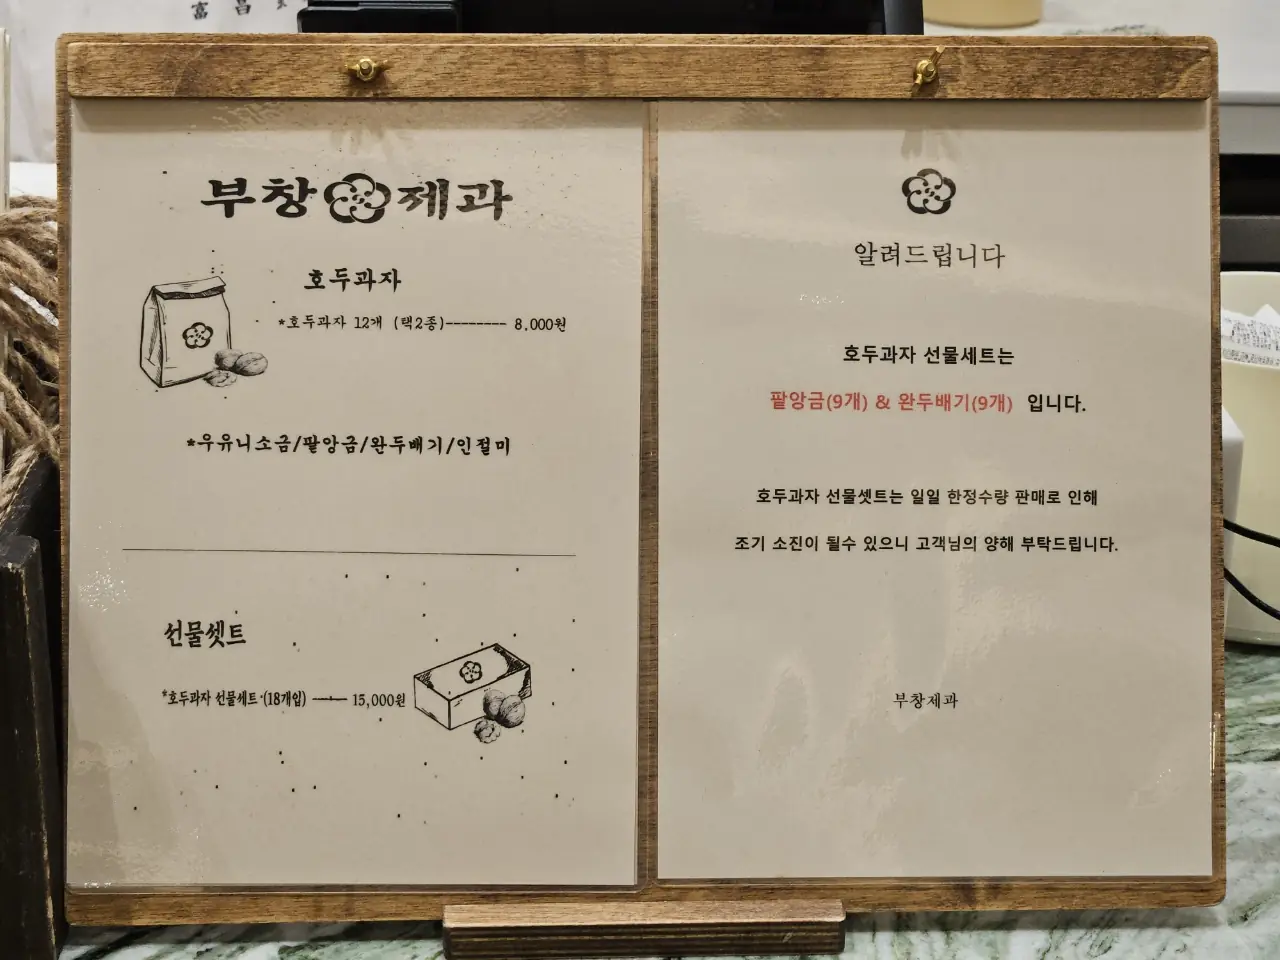 富昌
부창제과
호두과자
*호두과자 12개 (택2종)-------- 8,000원
*우유니소금/팥앙금/완두배기/인절미
선물셋트
*호두과자 선물세트 (18개입) ——— 15,000원
알려드립니다
호두과자 선물세트는
팥앙금(9개) & 완두배기(9개) 입니다.
호두과자 선물셋트는 일일 한정수량 판매로 인해
조기 소진이 될수 있으니 고객님의 양해 부탁드립니다.
부창제과